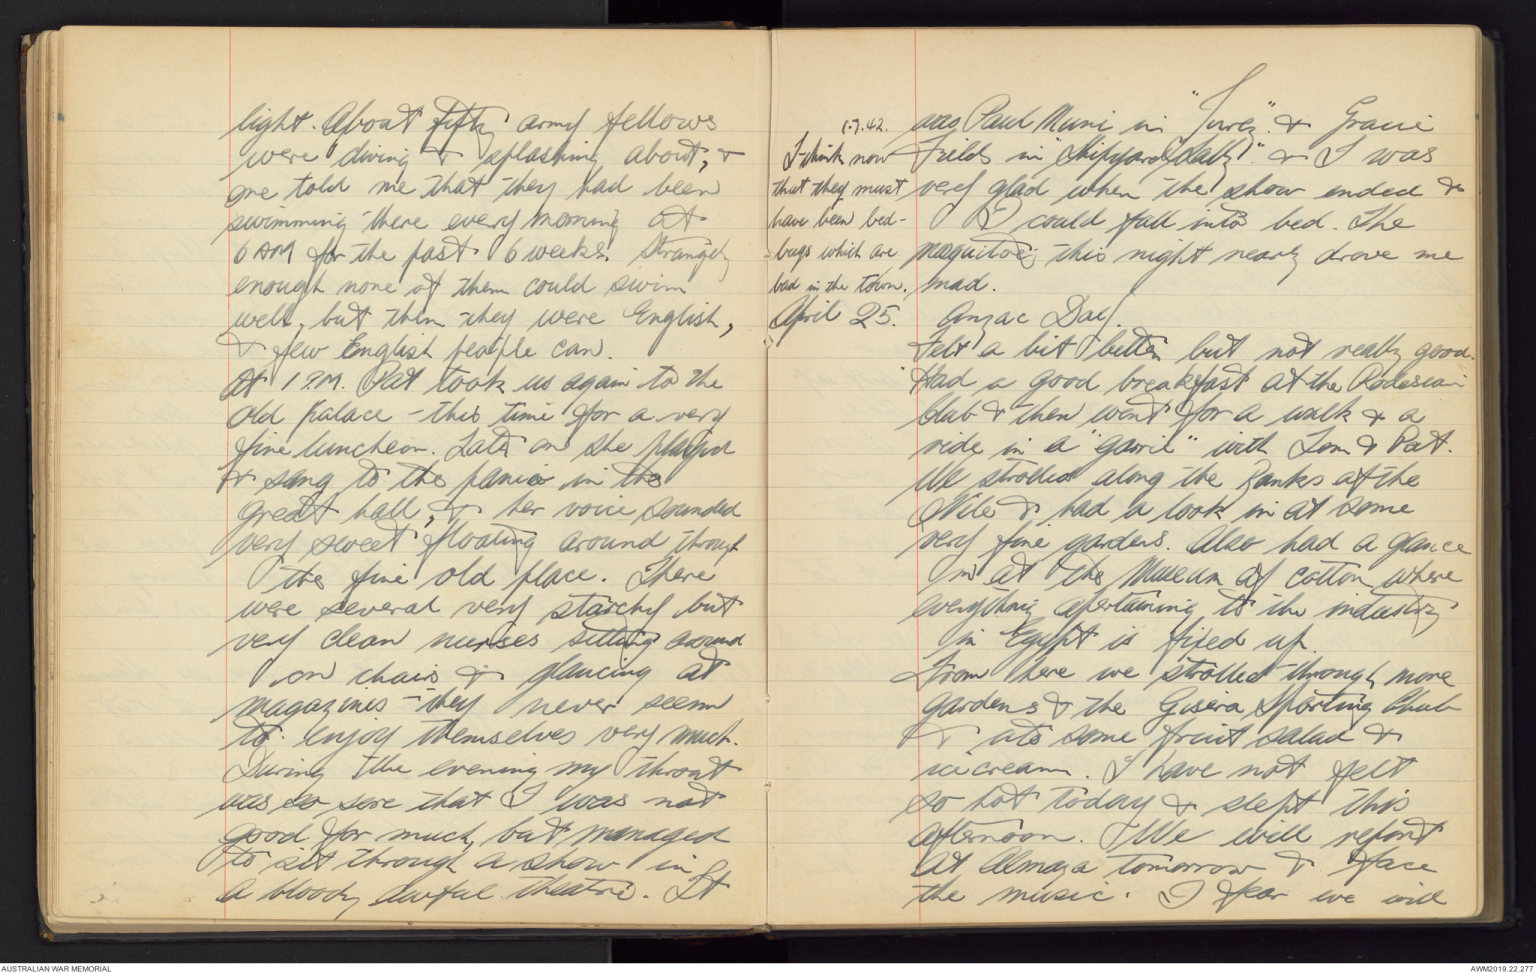 light. About fifty army fellows
were diving & splashing about, &
one told me that they had been
swimming there every morning at
6 AM for the past 6 weeks. Strangely
enough none of them could swim
well, but then they were English,
& few English people can.
At 1 P.M. Pat took us again to the
old palace - this time for a very
fine luncheon. Later on she played
& sang to the piano in the
great hall, & her voice sounded
very sweet floating around through
the fine old place. There
were several very starchy but
very clean nurses sitting around
on chairs & glancing at
magazines - they never seem
to enjoy themselves very much.
During the evening my throat
was so sore that I was not
good for much, but managed
to sit through a show in
a bloody awful theatre. It
was Paul Muni in "Juarez" & Gracie
Fields in "Shipyard Sally" & I was
very glad when the show ended &
I could fall into bed. The
mosquitoes this night nearly drove me
mad.
1.7.42.
I think now
that they must
have been bed-
bugs which are
bad in the town.
April 25. Anzac Day.
Felt a bit better but not really good.
Had a good breakfast at the Rodesian
Club & then went for a walk & a
ride in a "garri" with Tom & Pat.
We strolled along the banks of the
Nile & had a look in at some
very fine gardens. Also had a glance
in at the Museum of cotton where
everything apertaining to the industry
in Egypt is fixed up.
From here we strolled through more
gardens & the Gisera Sporting Club
& ate some fruit salad &
ice cream. I have not felt
so hot today & slept this
afternoon. We will report
at Almaza tomorrow & face
the music. I fear we will
AUSTRALIAN WAR MEMORIAL
AWM2019.22.277